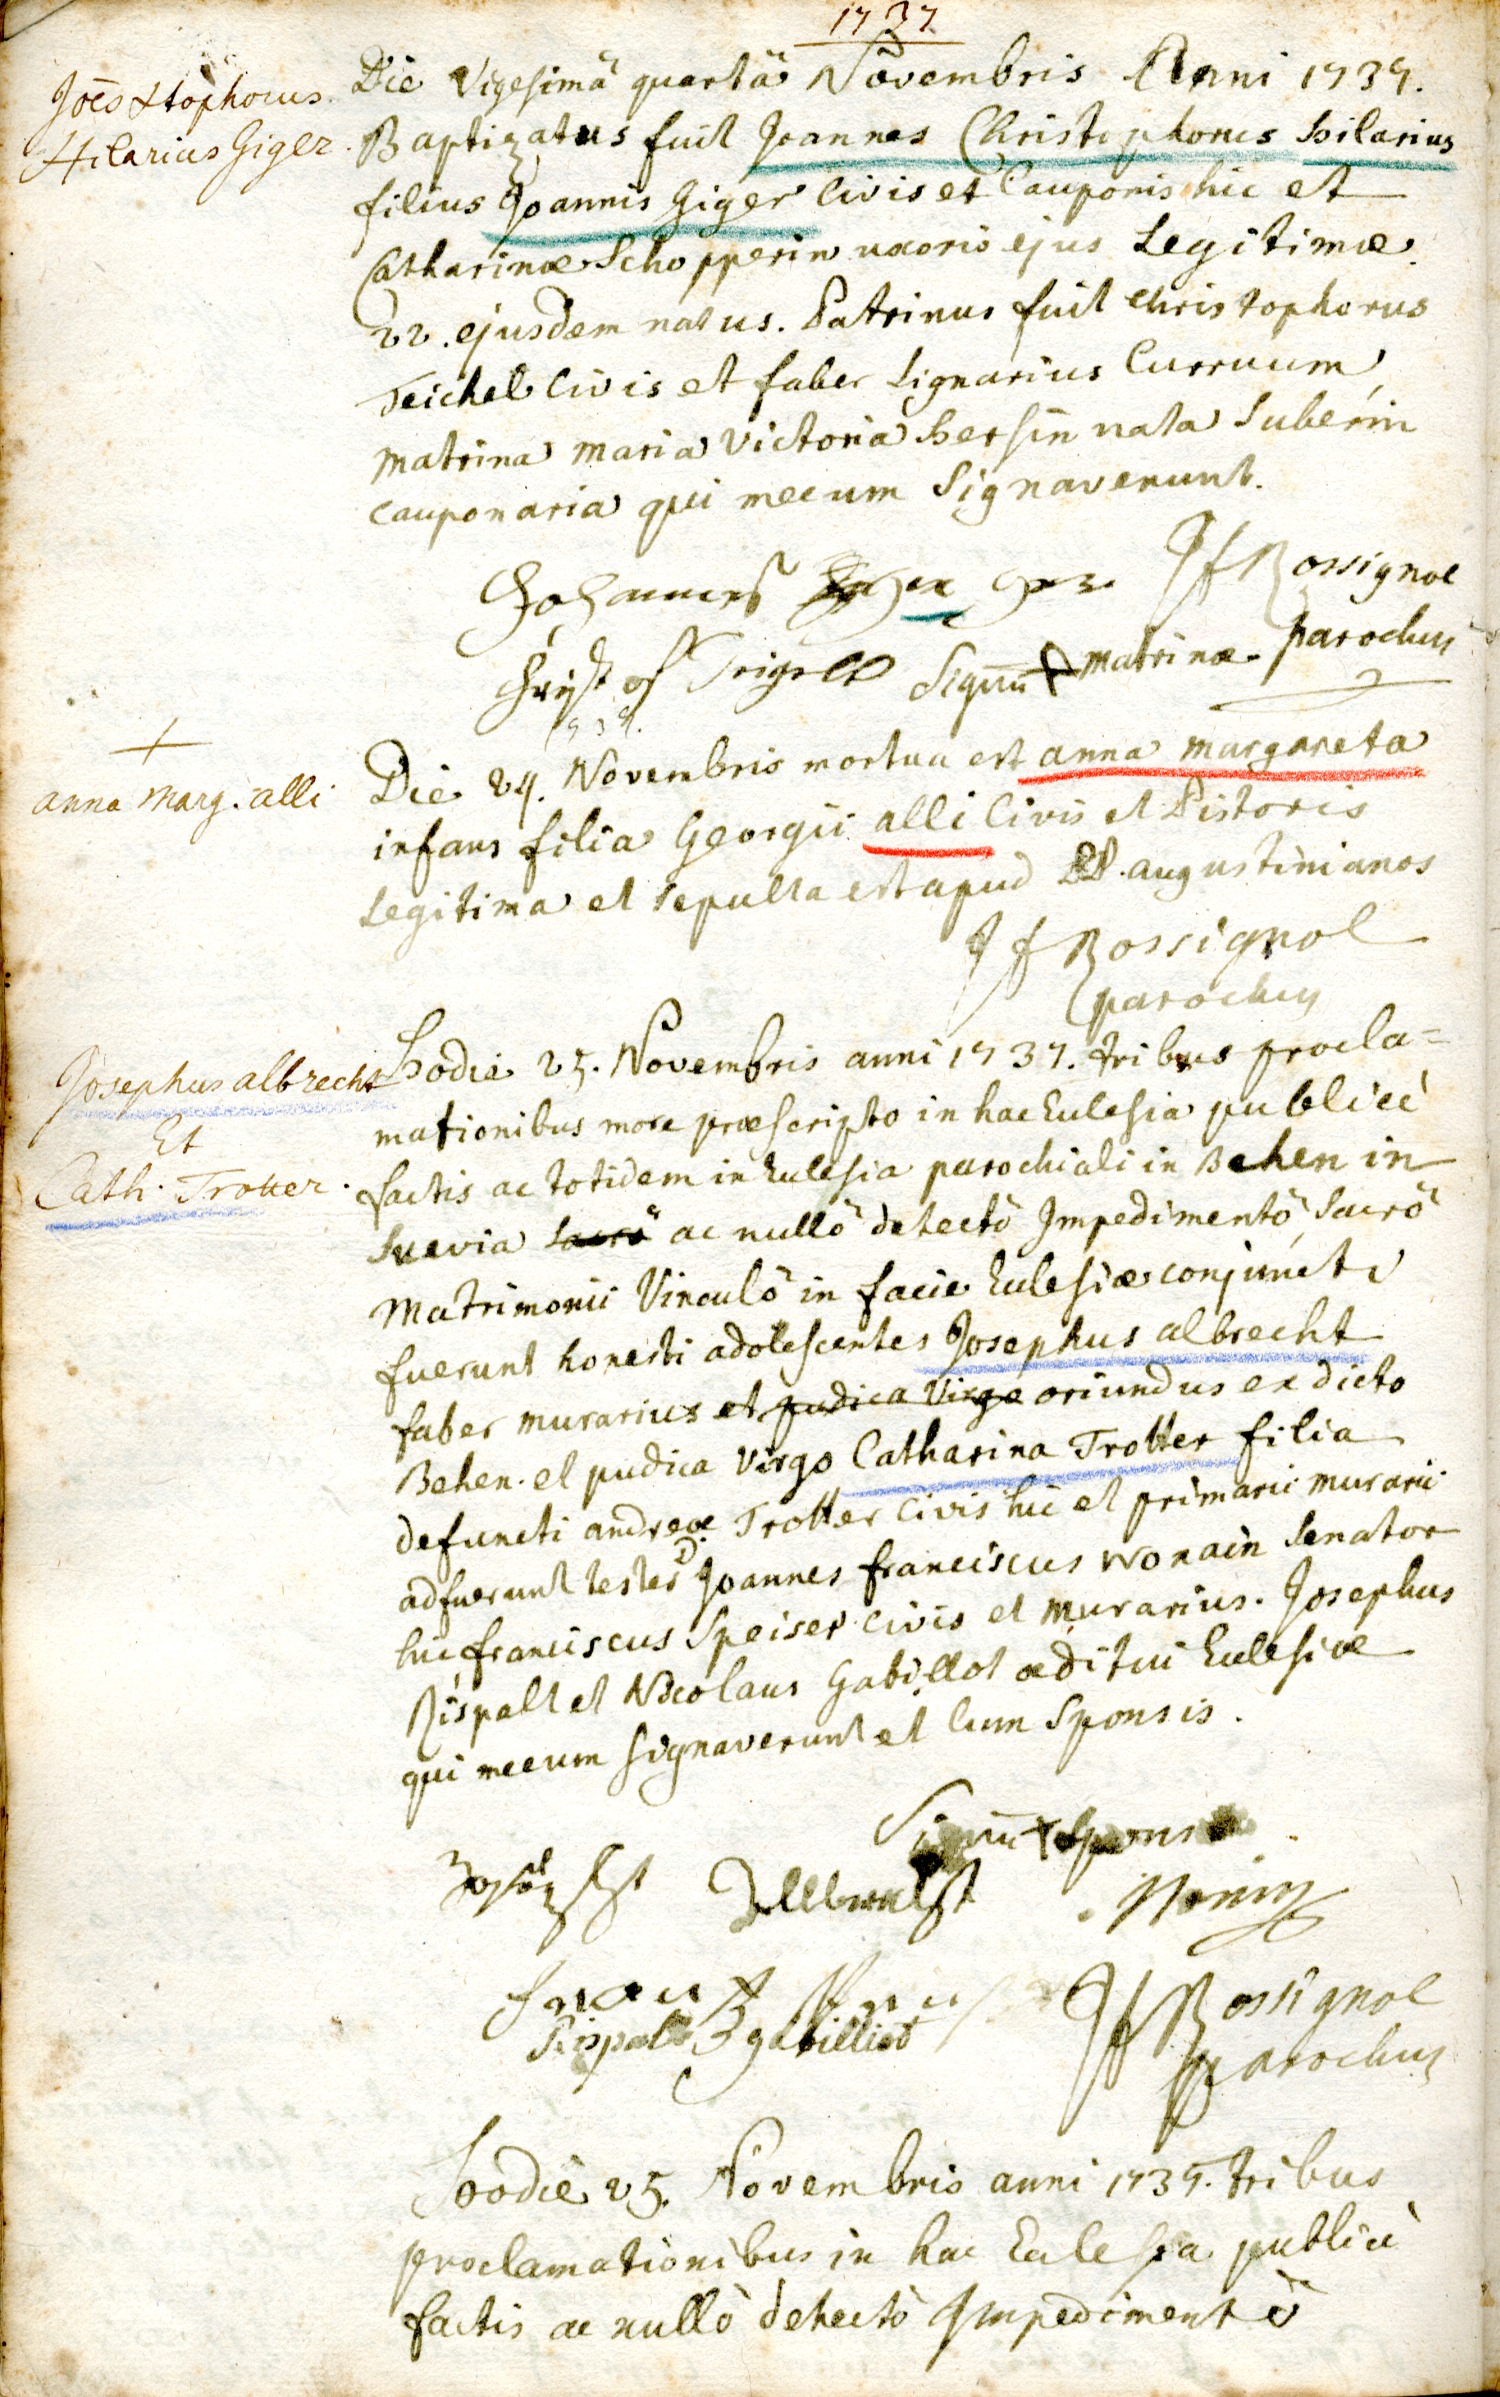 1737
Joēs Xtophorus
Hilarius Giger
Die Vigesimâ quartâ Novembris Anni 1737.
Baptizatus fuit Joannes Christophorus Hilarius
filius Joannis Giger Civis et Cauponis hic et
Catharinæ Schopperin uxoris ejus Legitimæ
22. ejusdem natus. Patrinus fuit Christophorus
Teichel Civis et faber Lignarius Curruum,
matrina Maria Victoria hersin nata Suberin
cauponaria qui mecum Signaverunt.
Johannes
JfRossignol
parochus
Signū + matrinæ
1737.
+
anna Marg. alli
Die 24. Novembris mortua est anna margareta
infans filia Georgii alli Civis et Pistoris
Legitima et sepulta est apud augustinianos
J f Rossignol
parochus
Josephus albrecht
Et
Cath. Trotter.
hodie 25. Novembris anni 1737. tribus procla=
mationibus more præscripto in hac Eclesia publicè
factis ac totidem in Eclesia parochiali in Behen in
Suevia sacrô ac nullô detectô Impedimentô Sacrô
Matrimonii Vinculô in facie Eclesiæ conjuncti
fuerunt honesti adolescentes Josephus albrecht
faber murarius et pudica Virgo oriundus ex dicto
Behen. et pudica Virgo Catharina Trotter filia
defuncti andreæ Trotter Civis hic et primarii murarii
adfuerunt testes D Joannes franciscus Wonain Senator
hic, franciscus Speiser civis et murarius. Josephus
Rispalt et Nicolaus Gabillot æditui Eclesiæ
qui mecum signaverunt et Cum Sponsis.
Signū + sponsæ
Rispalt gabilliot
JfRossignol
parochus
hodie 25. Novembris anni 1737. tribus
proclamationibus in hac Eclesia publicè
factis ac nullô detectô Impedimentô